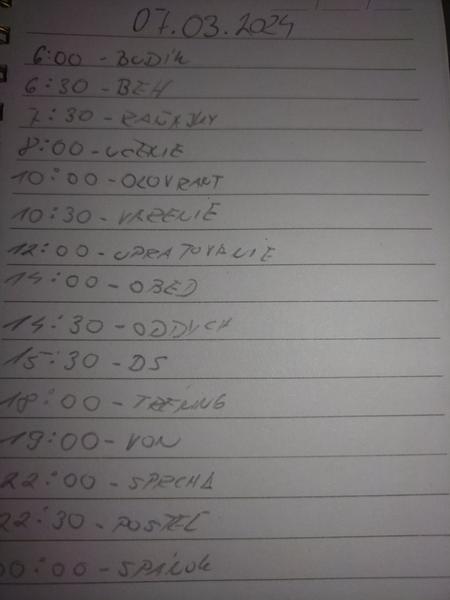 07.03.2024
6:00 - BUDÍK
6:30 - BEH
7:30 - RAŇAJKY
8:00 - UČENIE
10:00 - OLOVRANT
10:30 - VARENIE
12:00 - UPRATOVANIE
14:00 - OBED
14:30 - ODDYCH
15:30 - DS
18:00 - TRÉNING
19:00 - VON
22:00 - SPRCHA
22:30 - POSTEĽ
00:00 - SPÁNOK